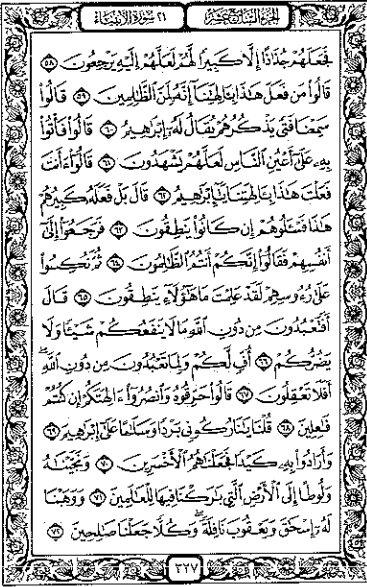 الجزء السابع عشر
٢١ سورة الأنبياء
فَجَعَلَهُمْ جُذَٰذًا إِلَّا كَبِيرًا لَّهُمْ لَعَلَّهُمْ إِلَيْهِ يَرْجِعُونَ ٥٨
قَالُوا۟ مَن فَعَلَ هَٰذَا بِـَٔالِهَتِنَآ إِنَّهُۥ لَمِنَ ٱلظَّٰلِمِينَ ٥٩ قَالُوا۟
سَمِعْنَا فَتًى يَذْكُرُهُمْ يُقَالُ لَهُۥٓ إِبْرَٰهِيمُ ٦٠ قَالُوا۟ فَأْتُوا۟
بِهِۦ عَلَىٰٓ أَعْيُنِ ٱلنَّاسِ لَعَلَّهُمْ يَشْهَدُونَ ٦١ قَالُوٓا۟ ءَأَنتَ
فَعَلْتَ هَٰذَا بِـَٔالِهَتِنَا يَٰٓإِبْرَٰهِيمُ ٦٢ قَالَ بَلْ فَعَلَهُۥ كَبِيرُهُمْ
هَٰذَا فَسْـَٔلُوهُمْ إِن كَانُوا۟ يَنطِقُونَ ٦٣ فَرَجَعُوٓا۟ إِلَىٰٓ
أَنفُسِهِمْ فَقَالُوٓا۟ إِنَّكُمْ أَنتُمُ ٱلظَّٰلِمُونَ ٦٤ ثُمَّ نُكِسُوا۟
عَلَىٰ رُءُوسِهِمْ لَقَدْ عَلِمْتَ مَا هَٰٓؤُلَآءِ يَنطِقُونَ ٦٥ قَالَ
أَفَتَعْبُدُونَ مِن دُونِ ٱللَّهِ مَا لَا يَنفَعُكُمْ شَيْـًٔا وَلَا
يَضُرُّكُمْ ٦٦ أُفٍّ لَّكُمْ وَلِمَا تَعْبُدُونَ مِن دُونِ ٱللَّهِ
أَفَلَا تَعْقِلُونَ ٦٧ قَالُوا۟ حَرِّقُوهُ وَٱنصُرُوٓا۟ ءَالِهَتَكُمْ إِن كُنتُمْ
فَٰعِلِينَ ٦٨ قُلْنَا يَٰنَارُ كُونِى بَرْدًا وَسَلَٰمًا عَلَىٰٓ إِبْرَٰهِيمَ ٦٩
وَأَرَادُوا۟ بِهِۦ كَيْدًا فَجَعَلْنَٰهُمُ ٱلْأَخْسَرِينَ ٧٠ وَنَجَّيْنَٰهُ
وَلُوطًا إِلَى ٱلْأَرْضِ ٱلَّتِى بَٰرَكْنَا فِيهَا لِلْعَٰلَمِينَ ٧١ وَوَهَبْنَا
لَهُۥٓ إِسْحَٰقَ وَيَعْقُوبَ نَافِلَةً وَكُلًّا جَعَلْنَا صَٰلِحِينَ ٧٢
٣٢٧